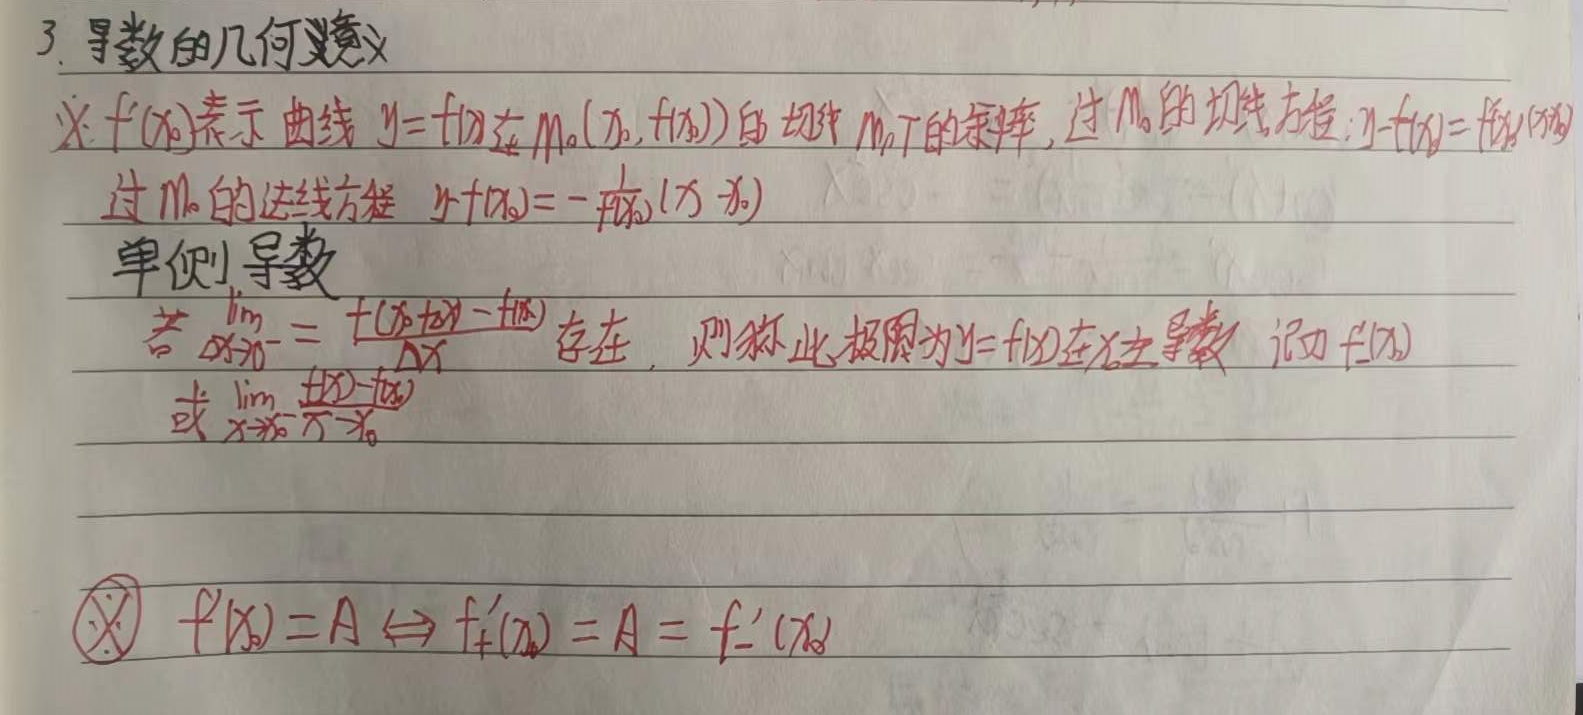 3. 导数的几何意义
※ f'(x₀)表示 曲线 y=f(x)在 M₀(x₀, f(x₀))的 切线 M₀T的斜率, 过M₀的切线方程: y-f(x₀)=f'(x₀)(x-x₀)
过M₀的法线方程 y-f(x₀)=-1/f'(x₀)(x-x₀)
单侧导数
若 lim Δx→0⁻ = f(x₀+Δx)-f(x₀)/Δx 存在, 则称此极限为y=f(x)在x₀左导数 记为 f'₋(x₀)
或 lim x→x₀⁻ f(x)-f(x₀)/x-x₀
※ f'(x₀)=A ⇔ f₊'(x₀)=A=f₋'(x₀)